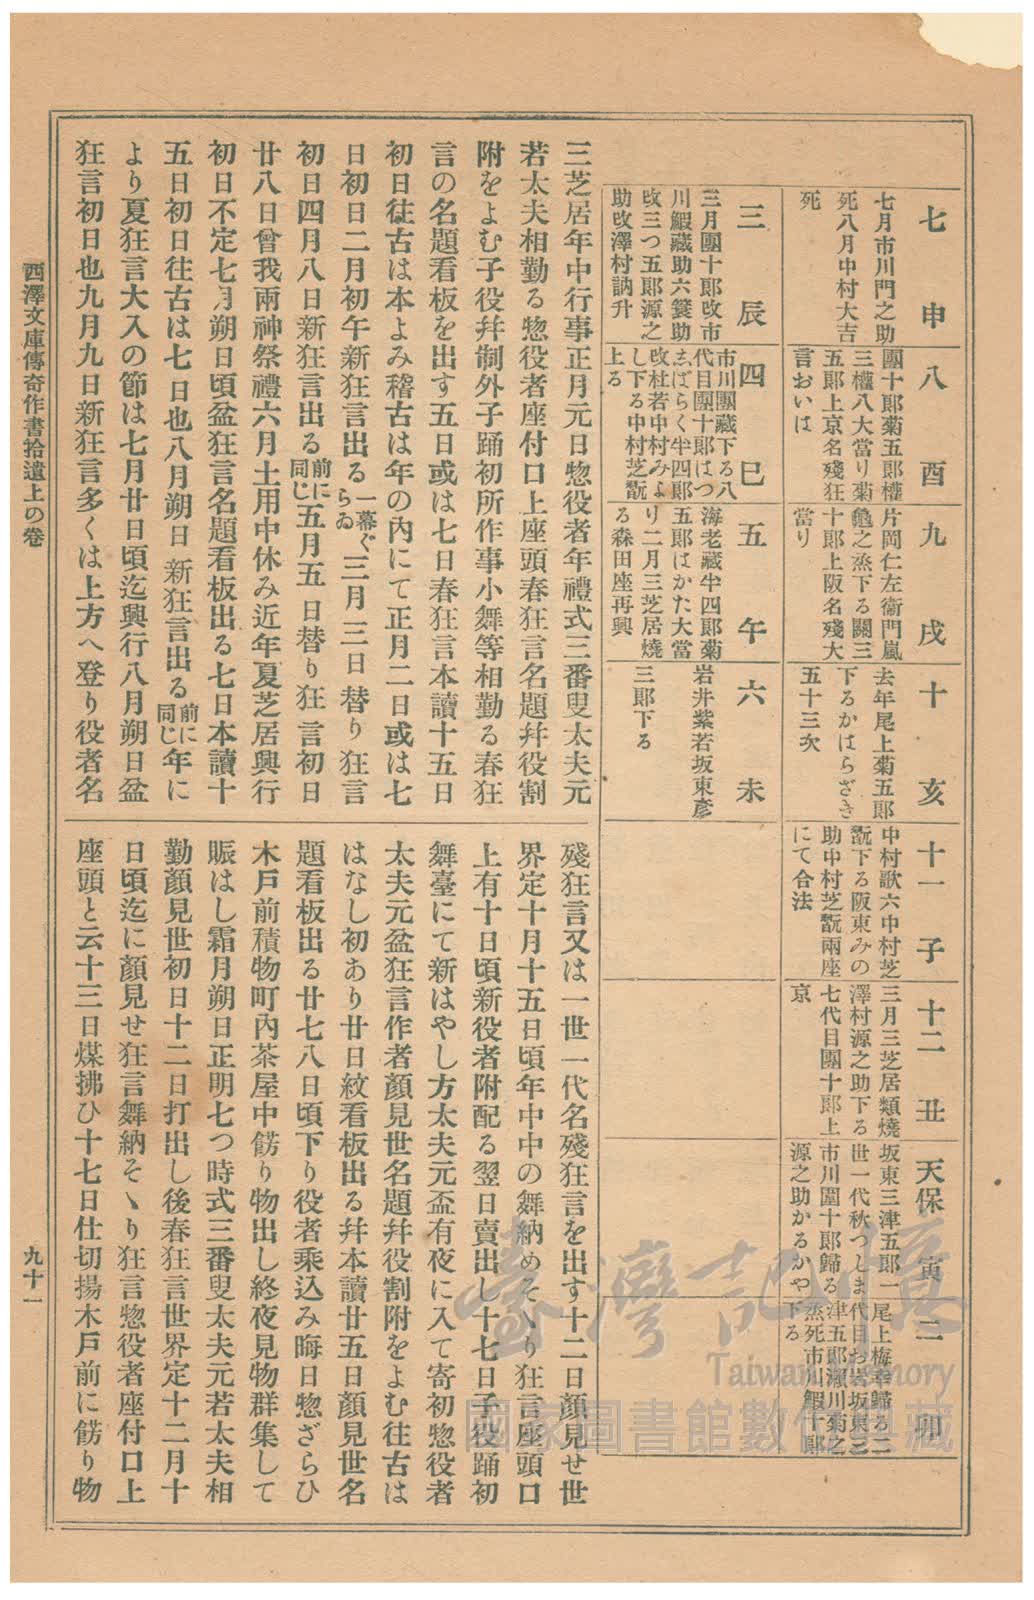 七申
七月市川門之助
死八月中村大吉
死
八酉
團十郎菊五郎權
三權八大當り菊
五郎上京名殘狂
言おいは
九戌
片岡仁左衞門嵐
龜之烝下る關三
十郎上阪名殘大
當り
十亥
去年尾上菊五郎
下るかはらざき
五十三次
十一子
中村歌六中村芝
翫下る阪東みの
助中村芝翫兩座
にて合法
十二丑
三月三芝居類燒
澤村源之助下る
七代目團十郎上
京
天保寅
坂東三津五郎一
世一代秋つしま
市川團十郎歸る
源之助かるかや
二卯
尾上梅幸歸る二
代目お岩坂東三
津五郎瀨川菊之
烝死市川鰕十郎
下る
三辰
三月團十郎改市
川鰕藏助六簔助
改三つ五郎源之
助改澤村訥升
四巳
市川團藏下る八
代目團十郎はつ
志ばらく半四郎
改杜若中村みよ
し下る中村芝翫
上る
五午
海老藏半四郎菊
五郎はかた大當
り二月三芝居燒
る森田座再興
六未
岩井紫若坂東彥
三郎下る
三芝居年中行事正月元日惣役者年禮式三番叟太夫元
若太夫相勤る惣役者座付口上座頭春狂言名題幷役割
附をよむ子役幷制外子踊初所作事小舞等相勤る春狂
言の名題看板を出す五日或は七日春狂言本讀十五日
初日徃古は本よみ稽古は年の內にて正月二日或は七
日初日二月初午新狂言出る一幕ぐらゐ三月三日替り狂言
初日四月八日新狂言出る前に同じ五月五日替り狂言初日
廿八日曾我兩神祭禮六月土用中休み近年夏芝居興行
初日不定七月朔日頃盆狂言名題看板出る七日本讀十
五日初日徃古は七日也八月朔日新狂言出る前に同じ年に
より夏狂言大入の節は七月廿日頃迄興行八月朔日盆
狂言初日也九月九日新狂言多くは上方へ登り役者名
殘狂言又は一世一代名殘狂言を出す十二日顏見せ世
界定十月十五日頃年中中の舞納めそゝり狂言座頭口
上有十日頃新役者附配る翌日賣出し十七日子役踊初
舞臺にて新はやし方太夫元盃有夜に入て寄初惣役者
太夫元盆狂言作者顏見世名題幷役割附をよむ徃古は
はなし初あり廿日紋看板出る幷本讀廿五日顏見世名
題看板出る廿七八日頃下り役者乘込み晦日惣ざらひ
木戶前積物町內茶屋中餝り物出し終夜見物群集して
賑はし霜月朔日正明七つ時式三番叟太夫元若太夫相
勤顏見世初日十二日打出し後春狂言世界定十二月十
日頃迄に顏見せ狂言舞納そゝり狂言惣役者座付口上
座頭と云十三日煤拂ひ十七日仕切揚木戶前に餝り物
西澤文庫傳奇作書拾遺上の卷
九十一
臺灣記憶
Taiwan Memory
國家圖書館數位典藏